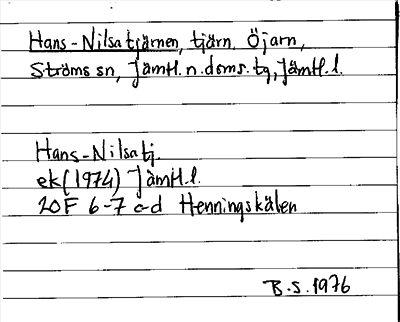 Hans-Nilsatjärnen, tjärn, Öjarn,
Ströms sn, Jämtl. n. doms. tg, Jämtl. l.
Hans-Nilsatj.
ek (1974) Jämtl. l.
20F 6-7 c-d Henningskälen
B.S. 1976